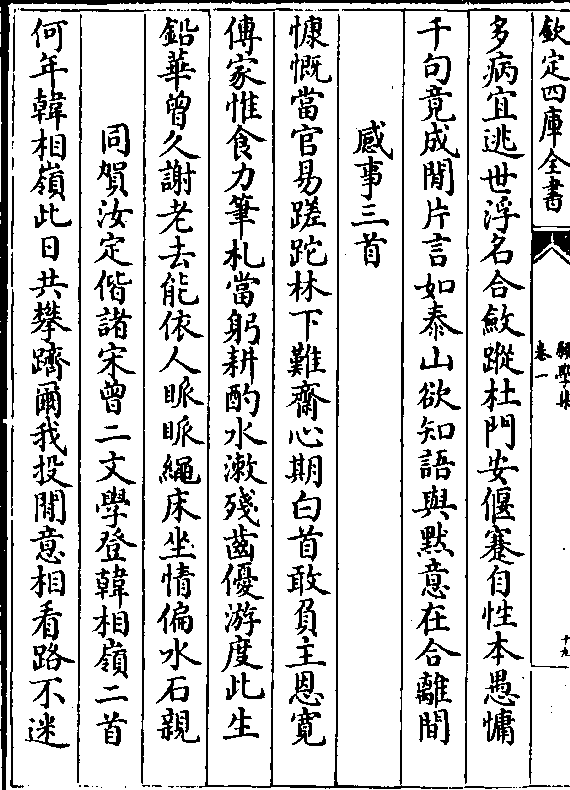 欽定四庫全書
願學集
卷一
十九
多病宜逃世浮名合斂蹤杜門安偃蹇自性本愚慵
千句竟成閒片言如泰山欲知語與默意在合離間
感事三首
慷慨當官易蹉跎林下難齋心期白首敢負主恩寬
傳家惟食力筆札當躬耕酌水漱殘齒優游度此生
鉛華曾久謝老去能依人脈脈繩床坐情偏水石親
同賀汝定偕諸宋曾二文學登韓相嶺二首
何年韓相嶺此日共攀躋爾我投閒意相看路不迷